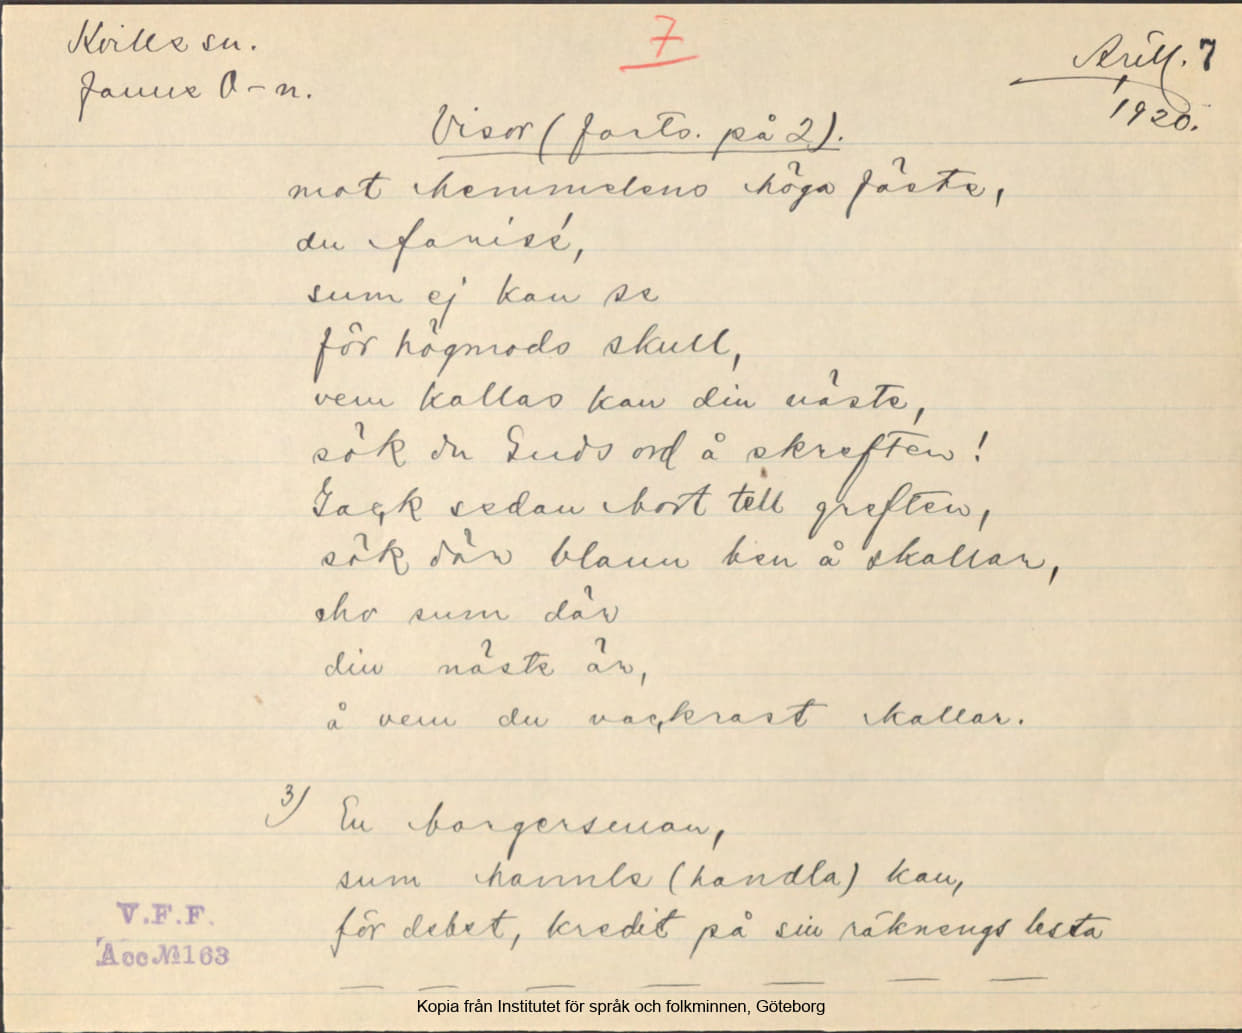 Kville sn.
Janne O-n.
7
Avill. 7
1920.
Visor (forts. på 2).
mot hemmelens höga fäste,
du farisé,
sum ej kan se
för högmods skull,
vem kallas kan din näste,
sök du Guds ord å skreften!
Gack sedan bort tell greften,
sök där blann ben å skallar,
ho sum där
din näste är,
å vem du vackrast kallar.
3) En borgersman,
sum hannle (handla) kan,
för debet, kredit på sin räknengs lesta
V.F.F.
Acc № 163
Kopia från Institutet för språk och folkminnen, Göteborg